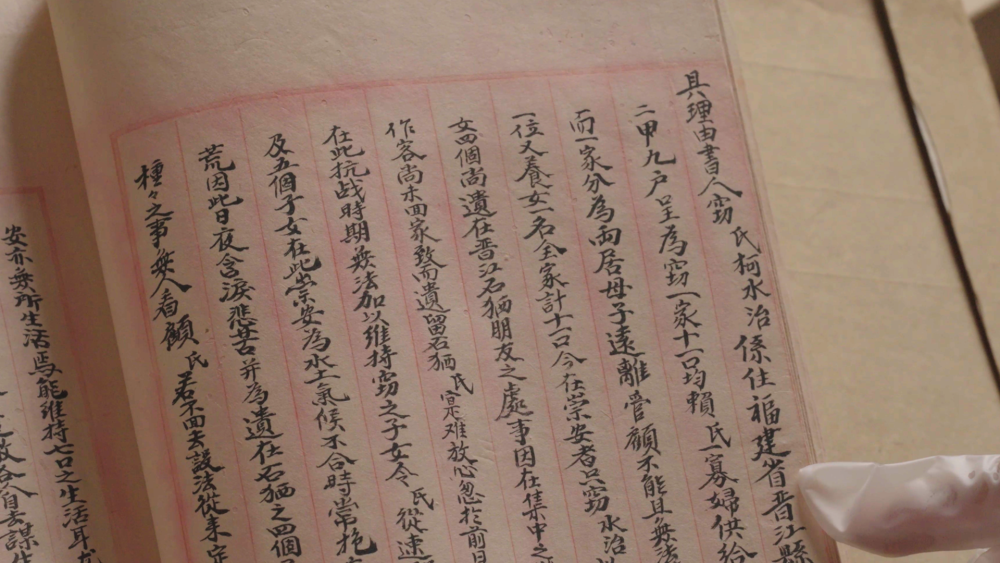 具理由書人窃氏柯水治係住福建省晋江縣
二甲九户呈為窃一家十一口均賴氏一寡婦供給
而一家分為両居母子遠離管顧不能且無法
一位又養女一名全家計十一口今在崇安者只窃水治
女四個尚遺在晋江石狮朋友之處事因在集中之
作客尚未回家致而遺留石狮氏寔难放心忽於前日
在此抗战時期無法加以維持窃之子女令氏從速
及五個子女在此崇安為水土氣候不合時常抱
荒因此日夜含淚悲苦并為遺在石狮之四個
種々之事無人看顧氏若不回去設法從来定
安亦無所生活焉能維持七口之生活耳
自去謀生